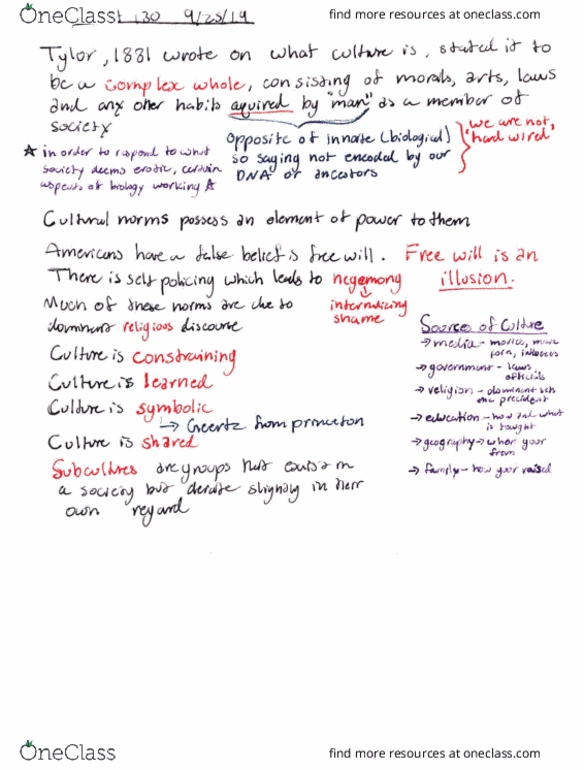 OneClass
130 9/25/19
find more resources at oneclass.com
Tylor, 1881 wrote on what culture is, stated it to
be a complex whole, consisting of morals, arts, laws
and any other habits aquired by "man" as a member of
society
opposite of innate (biological)
so saying not encoded by our
DNA or ancestors
we are not,
"hard wired"
☆ in order to respond to what
society deems erotic, certain
aspects of biology working ☆
Cultural norms possess an element of power to them
Americans have a false belief is free will. Free will is an
illusion.
There is self policing which leads to hegemony
internalizing
shame
Much of these norms are due to
dominant religious discourse
Culture is constraining
Culture is learned
Culture is symbolic
↳ Geertz from princeton
Culture is shared
Subcultures are groups that exist in
a society but deviate slightly in their
own regard
Sources of Culture
→ media - movies, music
porn,
→ government - laws
officials
→ religion - dominant
→ education - how and what
is taught
→ geography → where your
from
→ family - how your raised
OneClass
find more resources at oneclass.com